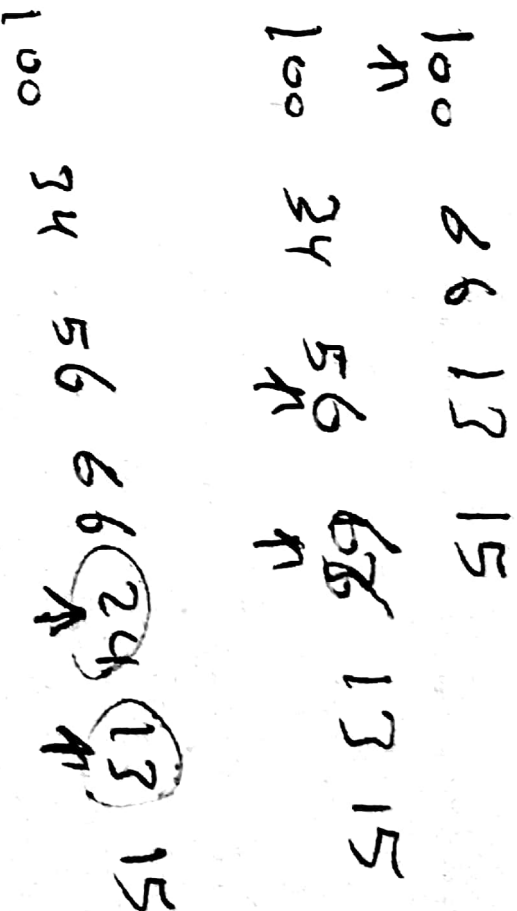 100 66 13 15
100 34 56 13 15
100 34 56 66 24 13 15